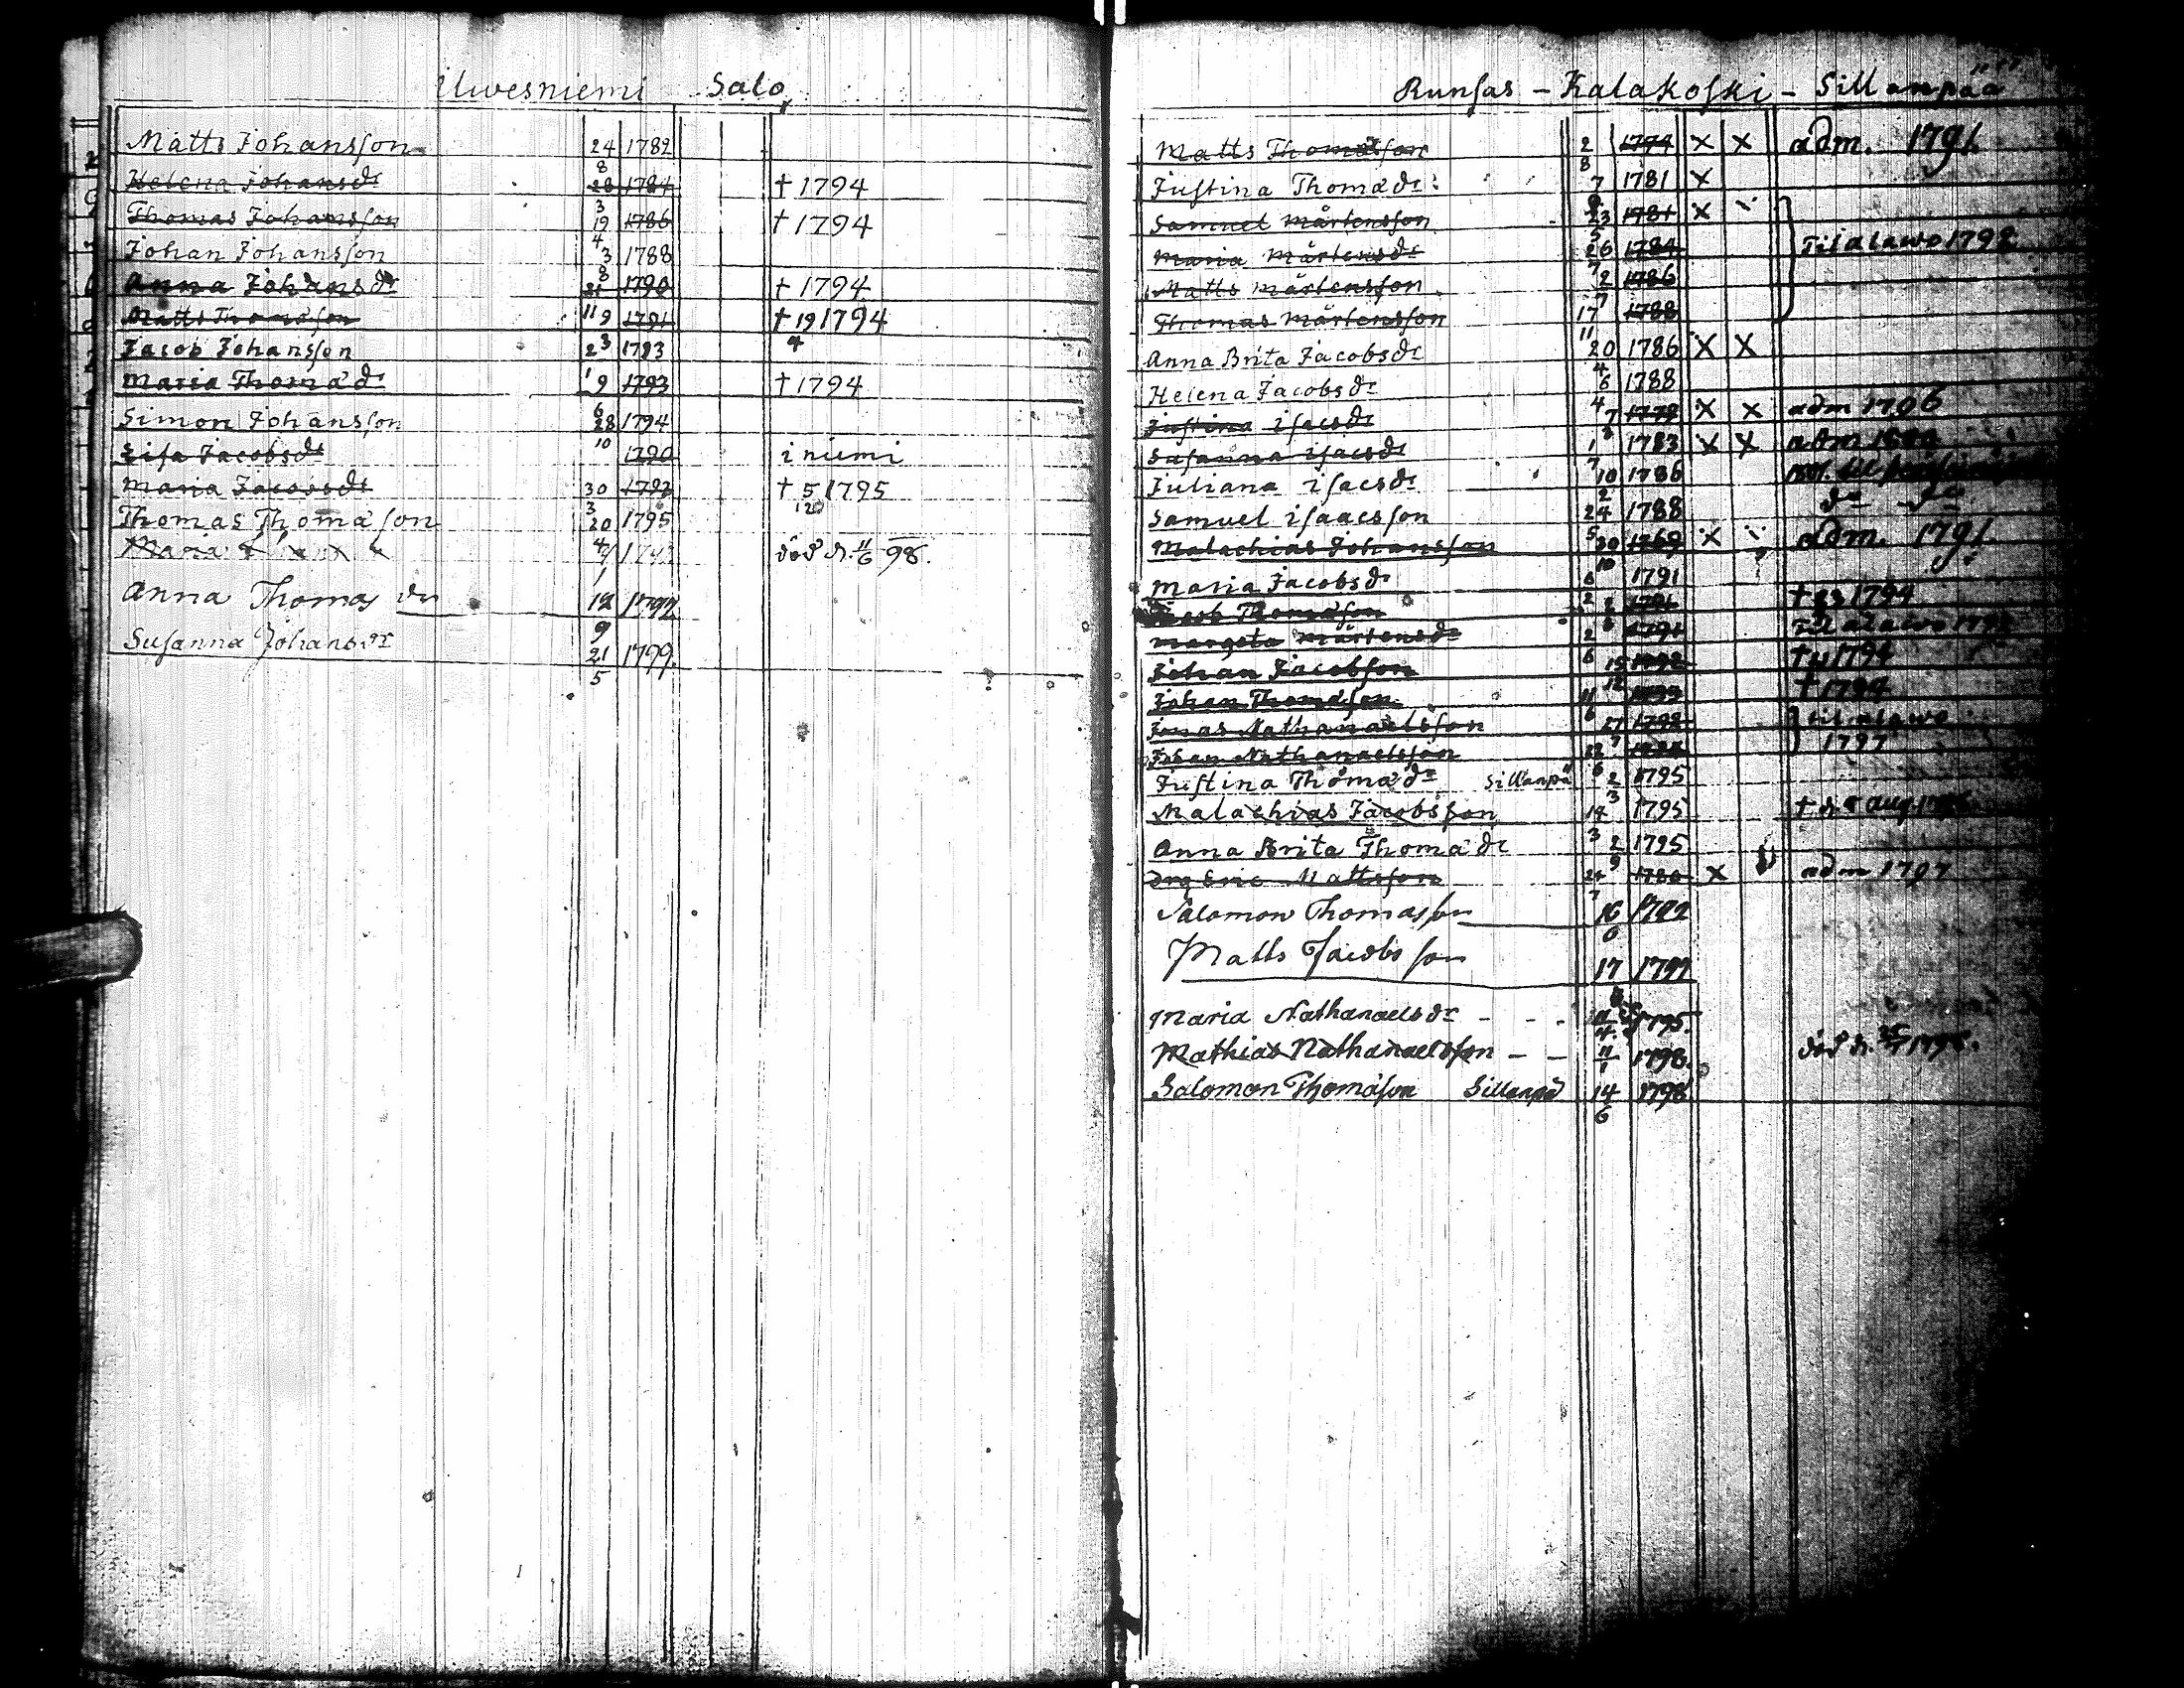 Uwesniemi Salo
Matts Johansson 24 1789
8
Helena Johansdr 28 1784 † 1794
3
Thomas Johansson 19 1786 † 1794
4
Johan Johansson 3 1788
8
Anna Johansdr 21 1790 † 1794
11
Matts Thomasson 9 1791 † 19 1794
4
Jacob Johansson 23 1783
Maria Thomadr 9 1793 † 1794
6
Simon Johansson 28 1794
10
Lisa Jacobsdr 1790 i niemi
Maria Jacobsdr 30 1793 † 5 1795
3 12
Thomas Thomason 20 1795
4
Maria död d. 11/6 98.
1
Anna Thomas dr 12 1797
9
Susanna Johansdr 21 1799.
5
Runsas - Kalakoski - Sillanpää
Matts Thomasson 2 1774 × × adm. 1791.
8
Justina Thomadr: 7 1781 ×
Samuel Mårtensson 23 1781 ×
5
Maria Mårtensdr 26 1784 Til alawo 1792
7
Matts Mårtensson 2 1786
7
Thomas Mårtensson 17 1788
11
Anna Brita Jacobsdr 20 1786 × ×
4
Helena Jacobsdr 6 1788
4
Justina isacsdr 7 1778 × × adm 1796
Susanna isacsdr 1 1783 × × adm
7
Juliana isacsdr 10 1786
2
Samuel isaacsson 24 1788 do do
5
Malachias Johansson 30 1769 × adm. 1791.
10
Maria Jacobsdr 6 1791
2
Jacob Thomasson 2 1791 † 1794
Margeta Mårtensdr 2 1791 Til alawo
6
Johan Jacobson 15 1792 † 11 1794
12
Johan Thomasson 11 † 1794
6
Jonas Nathanaelsson 27 1792 til alawo
7
Johan Nathanaelsson 22 1797
6
Justina Thomadr Sillanpä 2 1795
3
Malachias Jacobsson 14 1795 † d. aug.
3
Anna Brita Thomadr 2 1795
9
drg Eric Mattsson 24 1780 × adm 1797
7
Salomon Thomasson 16
6
Matts Jacobsson 17 1797
Maria Nathanaelsdr - - - 1795.
Mathias Nathanaelsson - - 11 1798. död d.
1
Salomon Thomason Sillanpä 14 1798
6